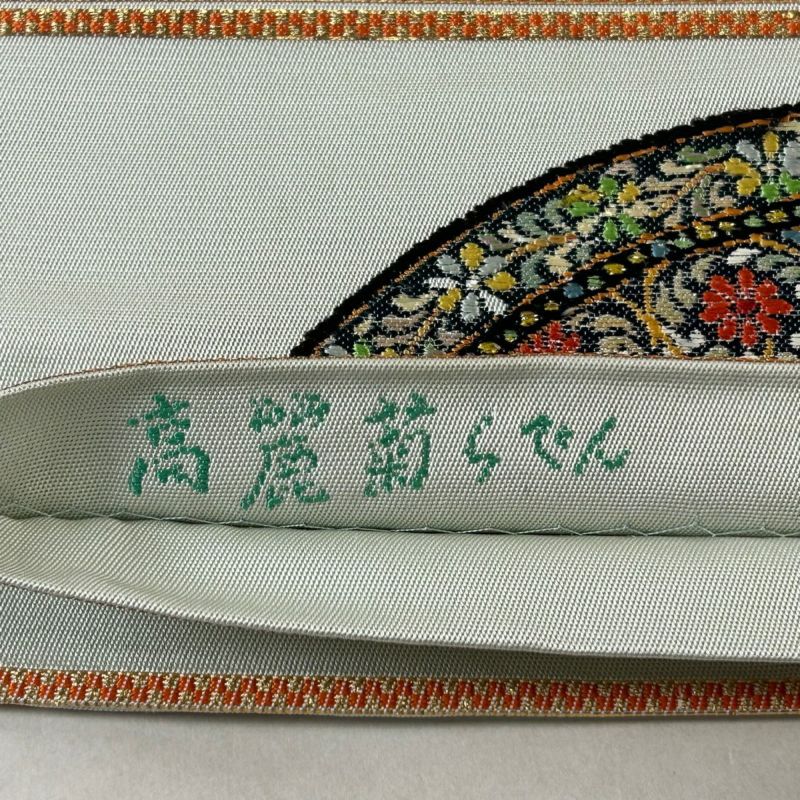 高麗菊らでん